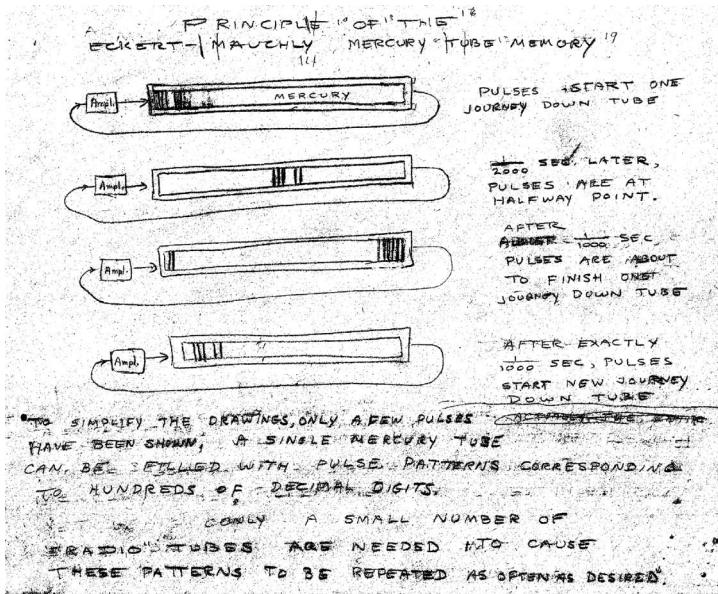 PRINCIPLE OF THE 18
ECKERT-MAUCHLY MERCURY TUBE MEMORY 19
14
Ampl.
MERCURY
PULSES START ONE
JOURNEY DOWN TUBE
Ampl.
1/2000 SEC. LATER,
PULSES ARE AT
HALFWAY POINT.
Ampl.
AFTER
1/1000 SEC,
PULSES ARE ABOUT
TO FINISH ONE
JOURNEY DOWN TUBE
Ampl.
AFTER EXACTLY
1/1000 SEC, PULSES
START NEW JOURNEY
DOWN TUBE
TO SIMPLIFY THE DRAWINGS, ONLY A FEW PULSES
HAVE BEEN SHOWN; A SINGLE MERCURY TUBE
CAN BE FILLED WITH PULSE PATTERNS CORRESPONDING
TO HUNDREDS OF DECIMAL DIGITS.
ONLY A SMALL NUMBER OF
"RADIO" TUBES ARE NEEDED TO CAUSE
THESE PATTERNS TO BE REPEATED AS OFTEN AS DESIRED.